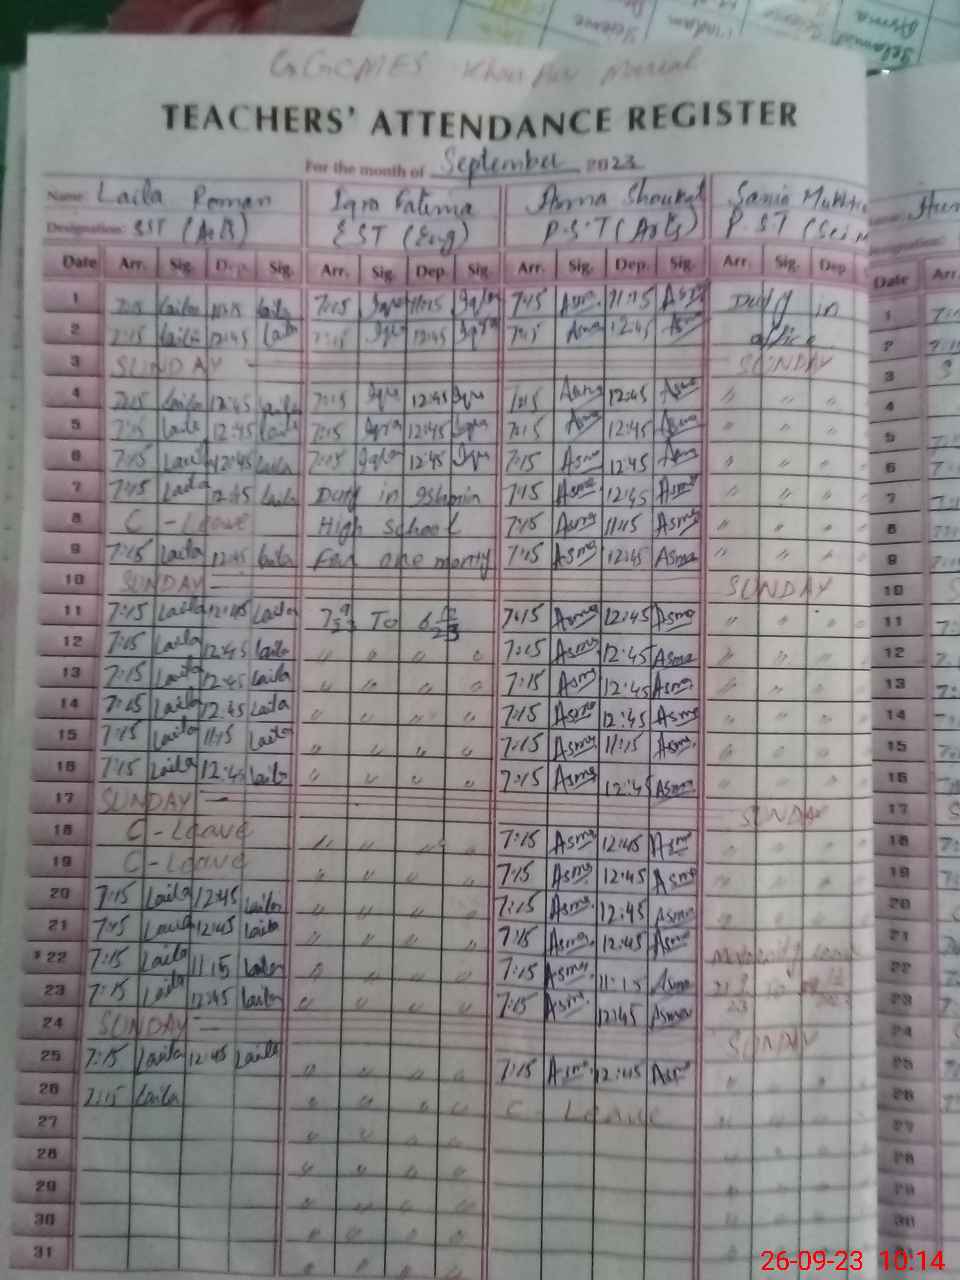 GGCMES Khan Pur
TEACHERS' ATTENDANCE REGISTER
For the month of September 2023
Name: Laila Roman Iqra Fatima Asma Shoukat Sania
Designation: EST (Arts) EST (Eng) P.S.T (Arts) P.S.T
Date Arr. Sig. Dep. Sig. Arr. Sig. Dep. Sig. Arr. Sig. Dep. Sig. Arr. Sig. Dep Date Arr.
1 7:15 Laila 11:15 Laila 7:15 Iqra 11:15 Iqra 7:15 Asma 11:15 Asma Duty in 1
2 7:15 Laila 12:45 Laila 7:15 Iqra 12:45 Iqra 7:15 Asma 12:45 Asma office 2
3 SUNDAY SUNDAY 3
4 7:15 Laila 12:45 Laila 7:15 Iqra 12:45 Iqra 7:15 Asma 12:45 Asma " " " 4
5 7:15 Laila 12:45 Laila 7:15 Iqra 12:45 Iqra 7:15 Asma 12:45 Asma " " " 5
6 7:15 Laila 12:45 Laila 7:15 Iqra 12:45 Iqra 7:15 Asma 12:45 Asma " " " 6
7 7:15 Laila 12:45 Laila Duty in 7:15 Asma 12:45 Asma " " " 7
8 C - Leave High school 7:15 Asma 11:15 Asma " " " 8
9 7:15 Laila 12:45 Laila For one month 7:15 Asma 12:45 Asma " " " 9
10 SUNDAY SUNDAY 10
11 7:15 Laila 12:45 Laila TO 7:15 Asma 12:45 Asma " " " 11
12 7:15 Laila 12:45 Laila " " " " 7:15 Asma 12:45 Asma " " " 12
13 7:15 Laila 12:45 Laila " " " " 7:15 Asma 12:45 Asma " " " 13
14 7:15 Laila 12:45 Laila " " " " 7:15 Asma 12:45 Asma " " " 14
15 7:15 Laila 11:15 Laila " " " " 7:15 Asma 11:15 Asma " " " 15
16 7:15 Laila 12:45 Laila " " " " 7:15 Asma 12:45 Asma " " " 16
17 SUNDAY SUNDAY 17
18 C - Leave " " " " 7:15 Asma 12:45 Asma " " " 18
19 C - Leave " " " " 7:15 Asma 12:45 Asma " " " 19
20 7:15 Laila 12:45 Laila " " " " 7:15 Asma 12:45 Asma " " " 20
21 7:15 Laila 12:45 Laila " " " " 7:15 Asma 12:45 Asma Maternity Leave 21
22 7:15 Laila 11:15 Laila " " " " 7:15 Asma 11:15 Asma TO 22
23 7:15 Laila 12:45 Laila " " " " 7:15 Asma 12:45 Asma 23
24 SUNDAY SUNDAY 24
25 7:15 Laila 12:45 Laila " " " " 7:15 Asma 12:45 Asma " " " 25
26 7:15 Laila " " " " C - Leave " " " 26
27 " " " " " " " 27
28 " " " " " " " 28
29 " " " " " " " 29
30 " " " " " " " 30
31 " " " "
26-09-23 10:14